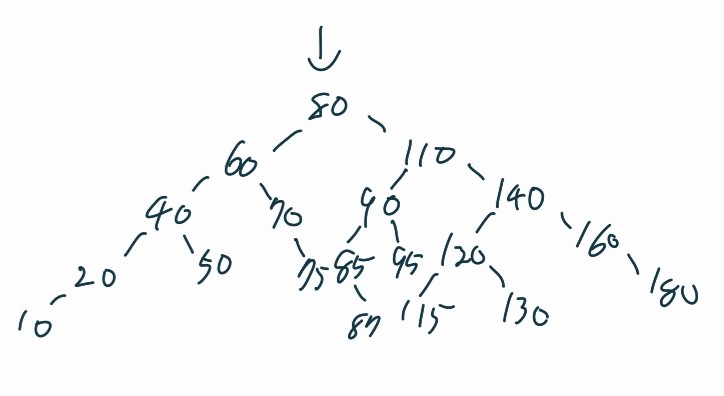 80
60 110
40 70 90 140
20 50 75 85 95 120 160
10 87 115 130 180